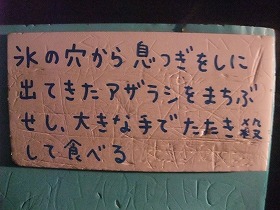 氷の穴から息つぎをしに
出てきたアザラシをまちぶ
せし、大きな手でたたき殺
して食べる